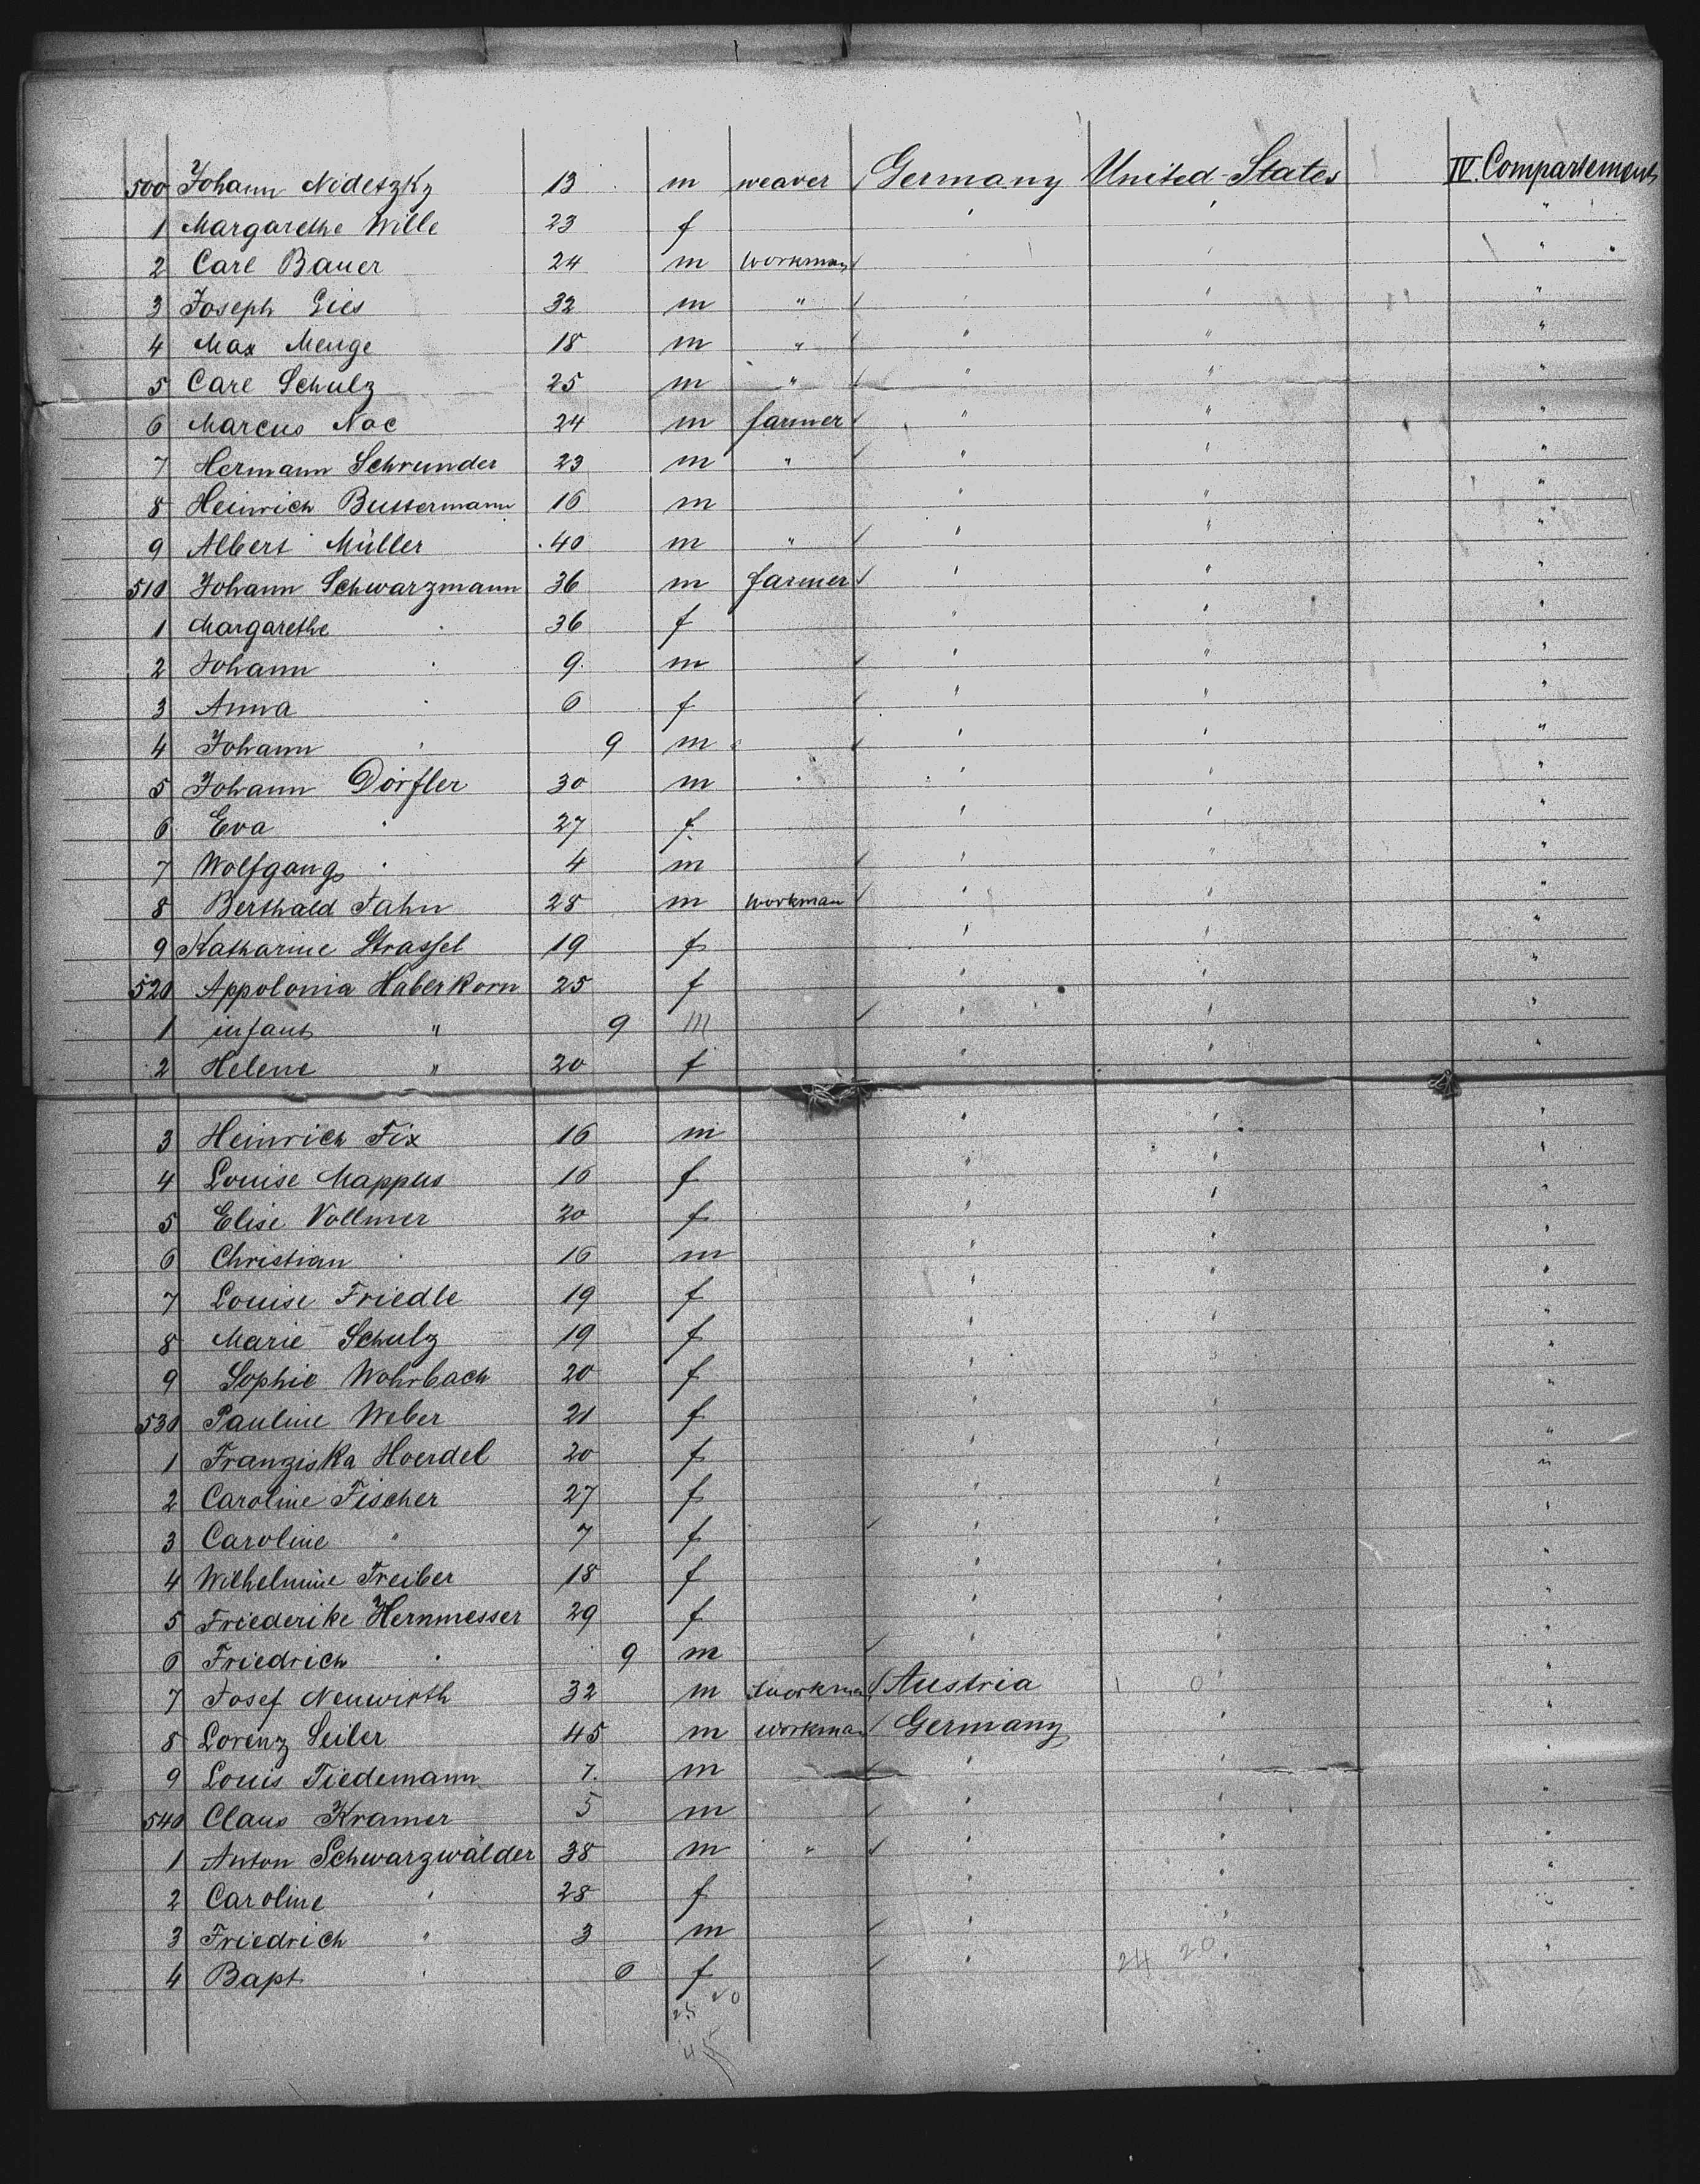 500 Johann Nidetzky 13 m weaver Germany United States IV. Compartement
1 Margarethe Wille 23 f " " "
2 Carl Bauer 24 m workman " " "
3 Joseph Gies 32 m " " " "
4 Max Menge 18 m " " " "
5 Carl Schulz 25 m " " " "
6 Marcus Noc 24 m farmer " " "
7 Hermann Schrunder 23 m " " " "
8 Heinrich Bustermann 16 m " " "
9 Albert Müller 40 m " " " "
510 Johann Schwarzmann 36 m farmer " " "
1 Margarethe " 36 f " " "
2 Johann " 9 m " " "
3 Anna " 6 f " " "
4 Johann " 9 m " " "
5 Johann Dörfler 30 m " " " "
6 Eva " 27 f " " "
7 Wolfgang " 4 m " " "
8 Berthald Jahn 28 m workman " " "
9 Katharine Strassel 19 f " " "
520 Appolonia Haberkorn 25 f " " "
1 infant " 9 m " " "
2 Helene " 20 f " " "
3 Heinrich Fix 16 m " " "
4 Louise Mappus 16 f " " "
5 Elise Vollmer 20 f " " "
6 Christian " 16 m " " "
7 Louise Friedle 19 f " " "
8 Marie Schulz 19 f " " "
9 Sophie Wohrbach 20 f " " "
530 Pauline Weber 21 f " " "
1 Franziska Hoerdel 20 f " " "
2 Caroline Fischer 27 f " " "
3 Caroline " 7 f " " "
4 Wilhelmine Treiber 18 f " " "
5 Friederike Hernmesser 29 f " " "
6 Friedrich " 9 m " " "
7 Josef Neuwirth 32 m workman Austria 1 0 " "
8 Lorenz Seiler 45 m workman Germany " "
9 Louis Tiedemann 7 m " " "
540 Claus Kramer 5 m " " "
1 Anton Schwarzwälder 38 m " " " "
2 Caroline " 28 f " " "
3 Friedrich " 3 m " " "
4 Bapt " 6 f " 24 20 " "
25 20
45